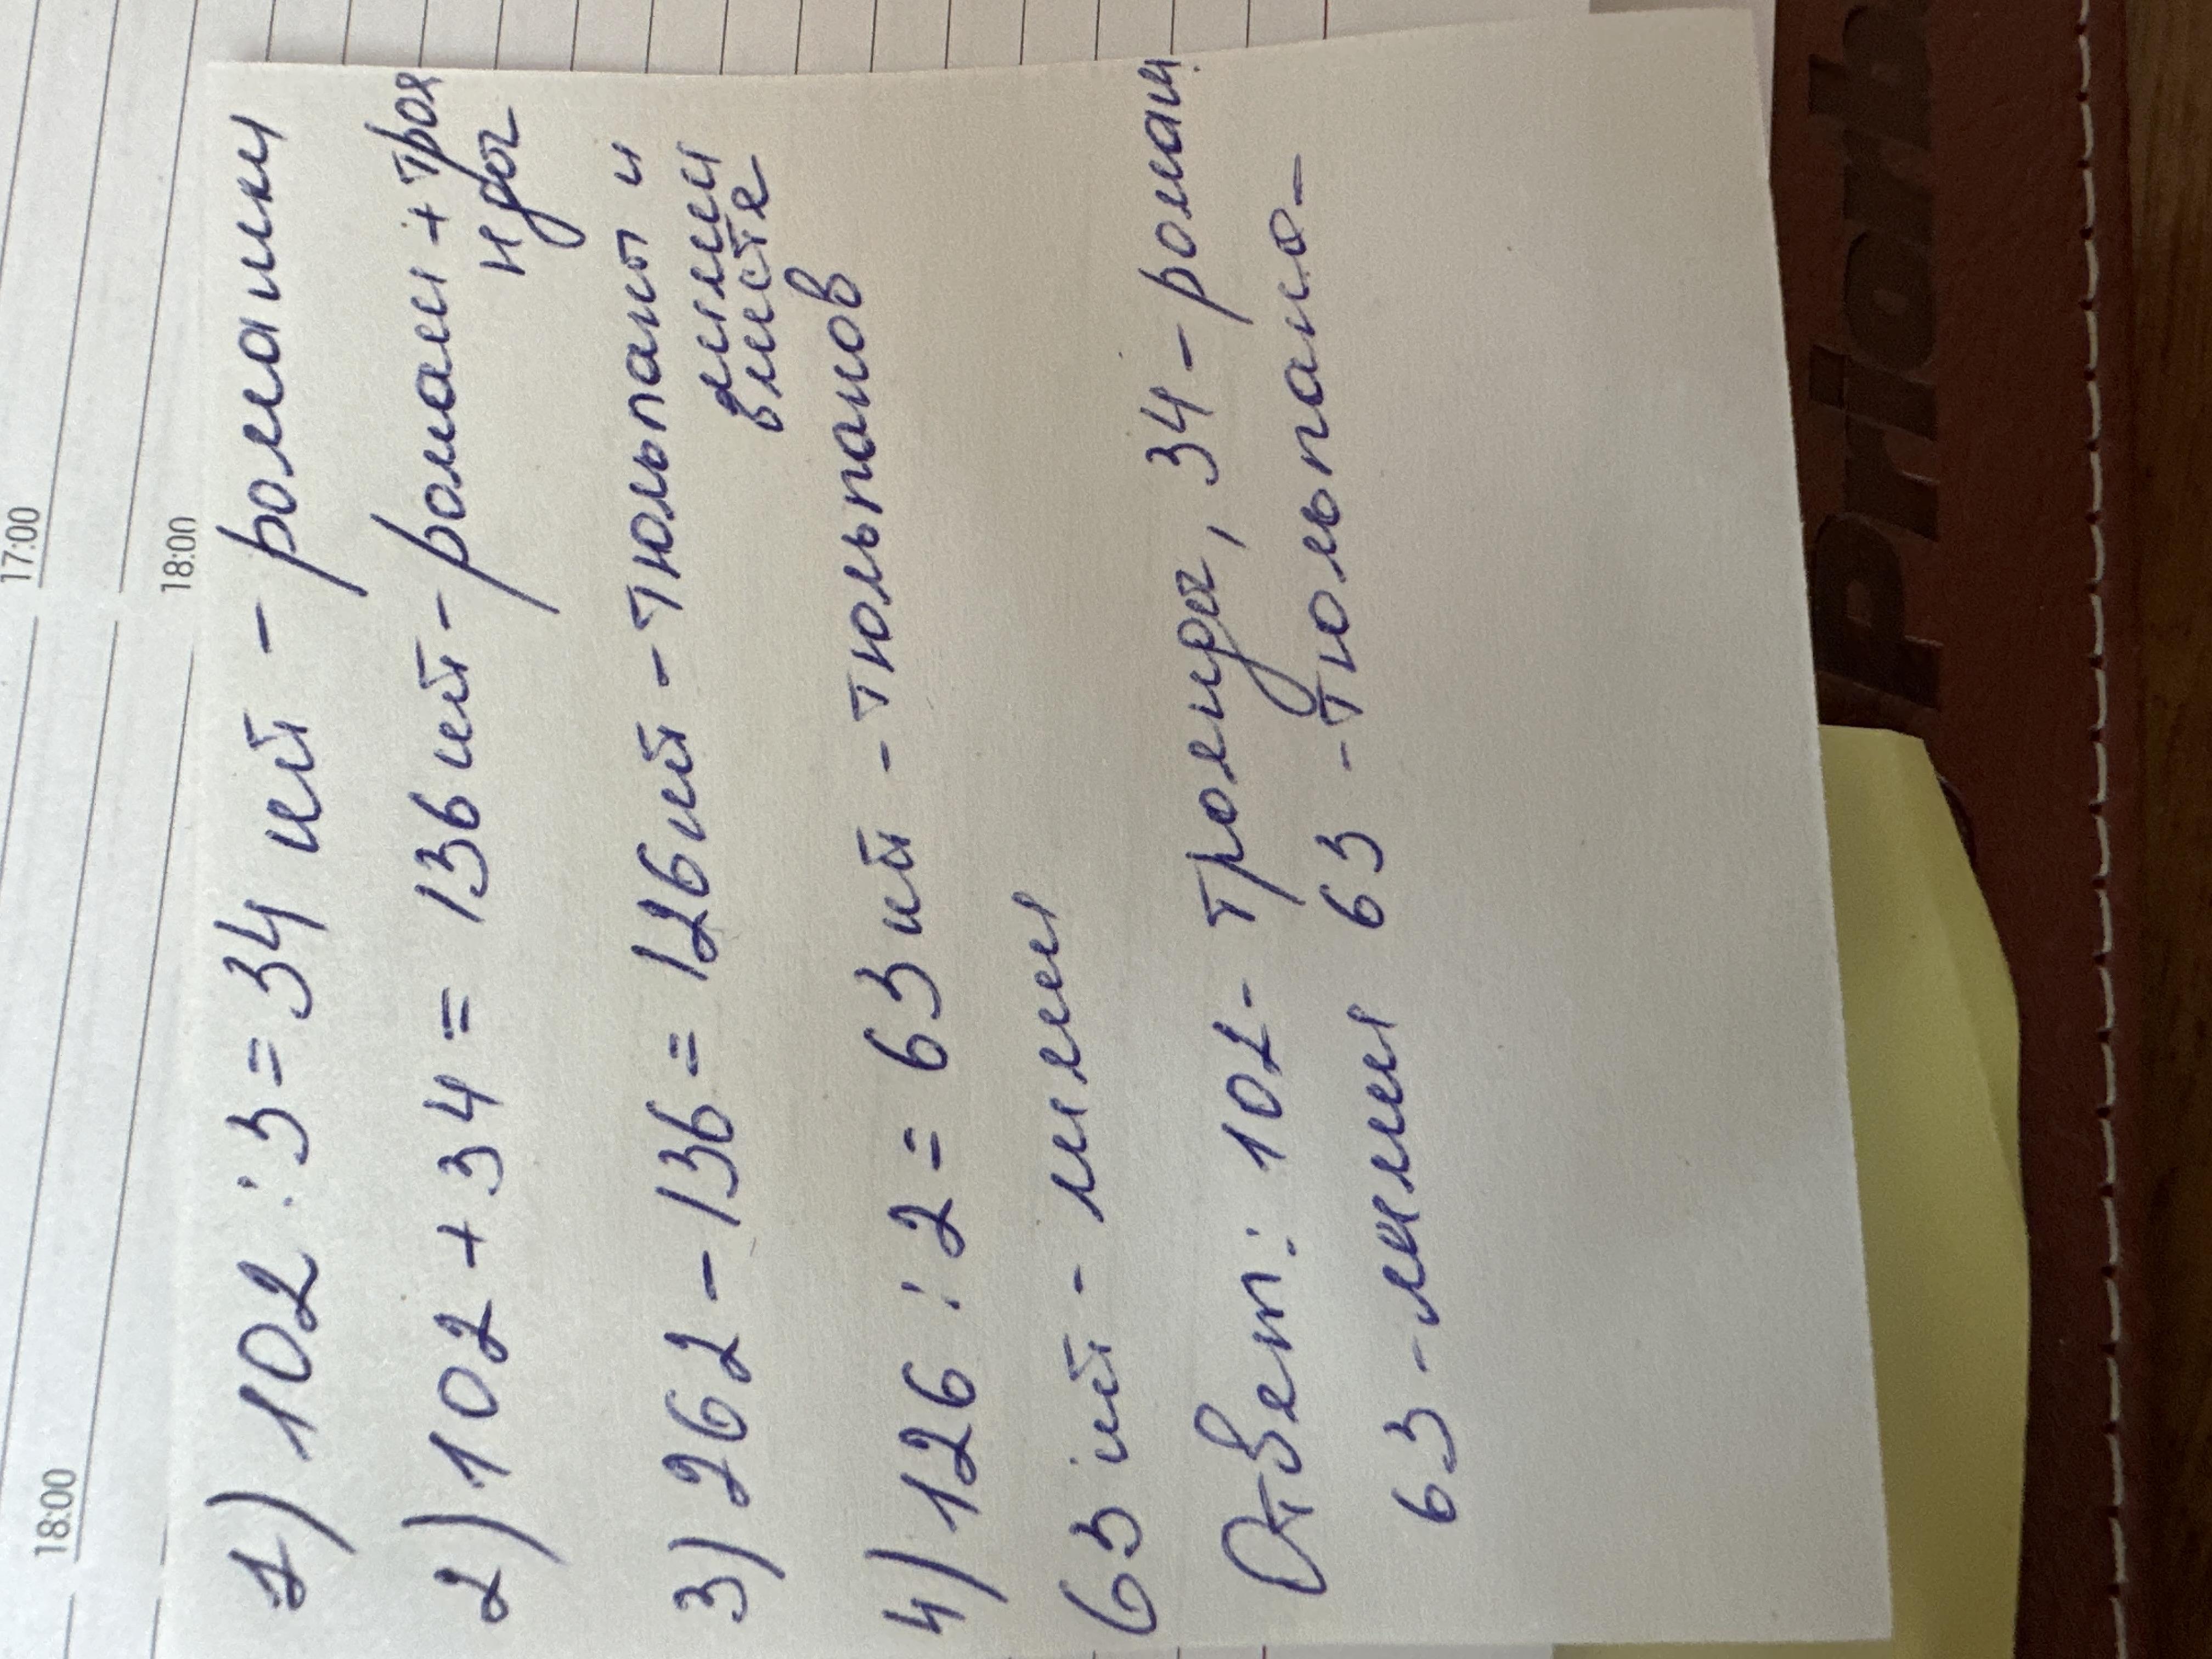 17:00
18:00
18:00
1) 102 : 3 = 34 шт - ромашки
2) 102 + 34 = 136 шт - ромаш + троя
нды
3) 262 - 136 = 126 шт - тюльпаны и
лилии
вместе
4) 126 : 2 = 63 шт - тюльпанов
63 шт - лилии
Ответ: 102 - троянды, 34 - ромаш.
63 - лилии 63 - тюльпано-
Priorb